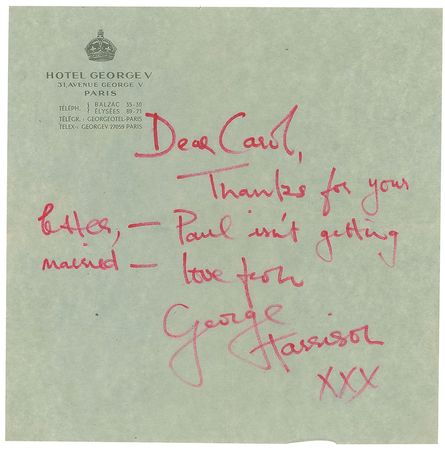 HOTEL GEORGE V
31, AVENUE GEORGE V
PARIS
TÉLÉPH. } BALZAC 35-30
ÉLYSÉES 89-71
TÉLÉGR. : GEORGEOTEL-PARIS
TELEX : GEORGEV 27059 PARIS
Dear Carol,
Thanks for your
letter, — Paul isn't getting
married — love from
George
Harrison
XXX